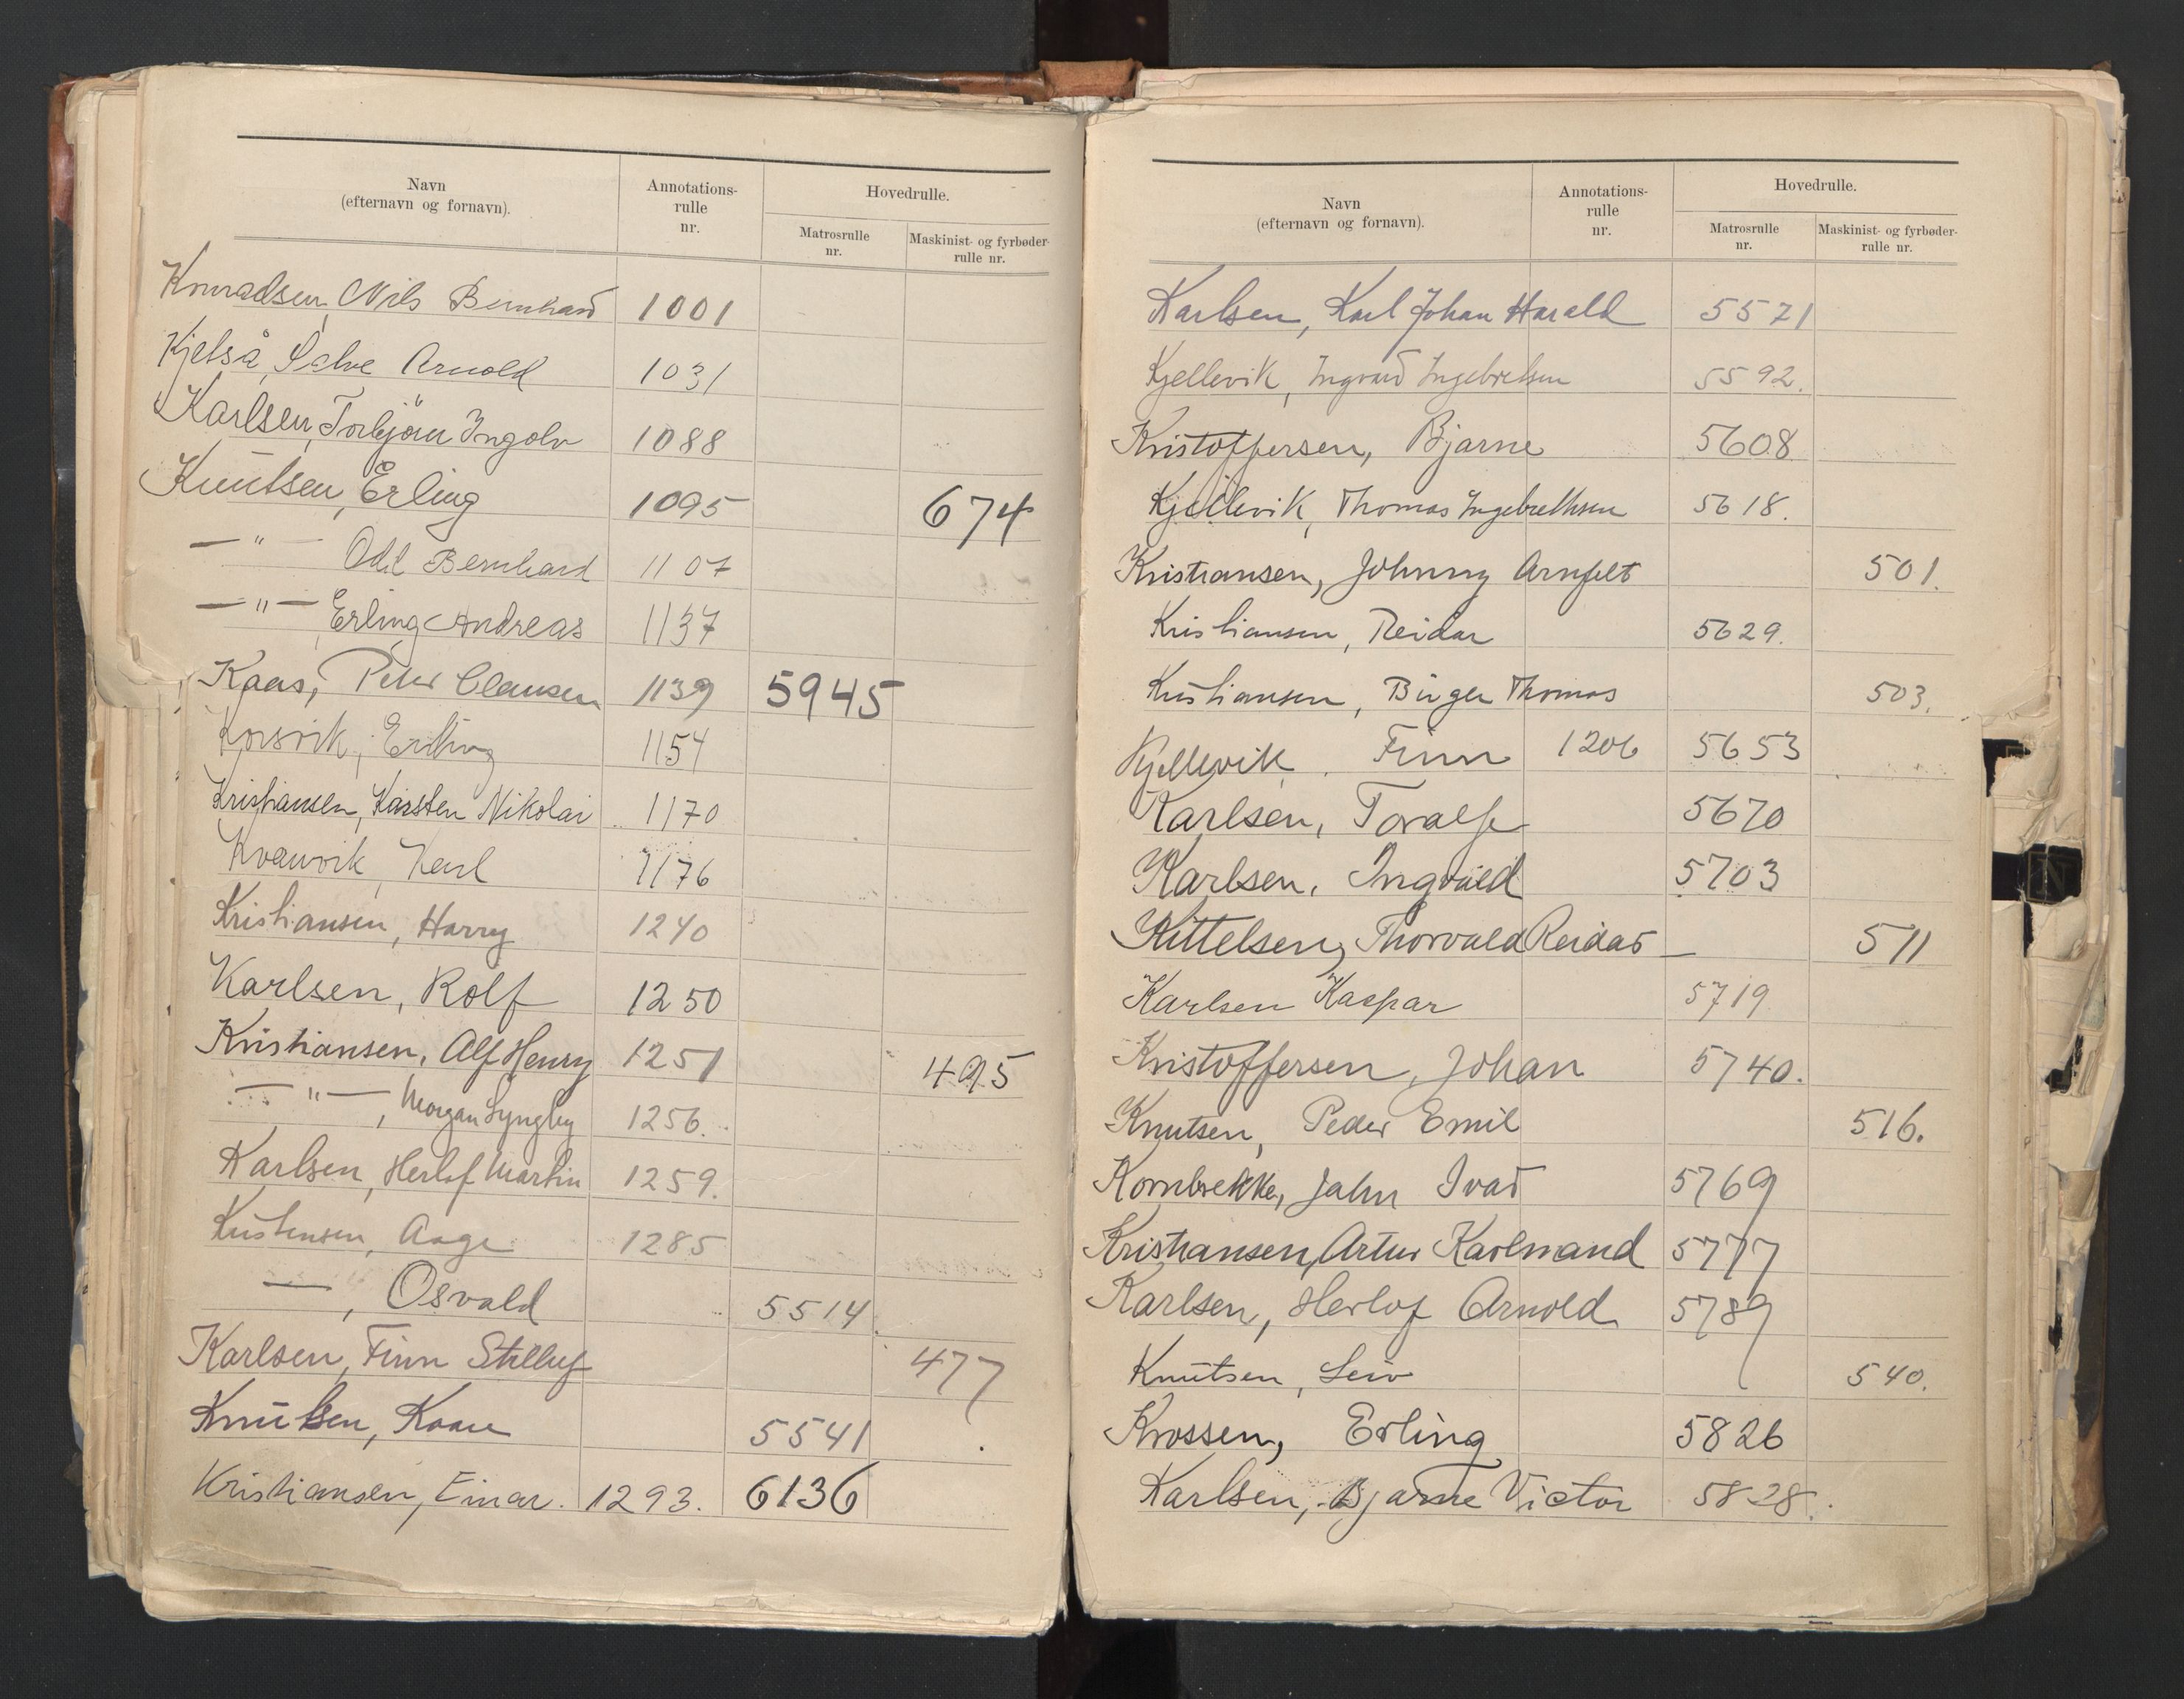 Navn
(efternavn og fornavn).
Annotations-
rulle
nr.
Hovedrulle.
Matrosrulle
nr.
Maskinist- og fyrbøder-
rulle nr.
Konradsen, Nils Bernhard 1001
Kjelså, Salve Arnold 1031
Karlsen, Torbjörn Ingolv 1088
Knutsen, Erling 1095 674
—"— Odd Bernhard 1107
—"— Erling Andreas 1137
Kaas, Peter Clausen 1139 5945
Korsvik, Erling 1154
Kristiansen, Karsten Nikolai 1170
Kvanvik, Karl 1176
Kristiansen, Harry 1240
Karlsen, Rolf 1250
Kristiansen, Alf Henry 1251 495
—"—, Morgan Lyngby 1256.
Karlsen, Herlof Martin 1259.
Kristensen, Aage 1285
—, Osvald 5514
Karlsen, Finn 477
Knutsen, Kaare 5541
Kristiansen, Einar. 1293. 6136
Navn
(efternavn og fornavn).
Annotations-
rulle
nr.
Hovedrulle.
Matrosrulle
nr.
Maskinist- og fyrbøder-
rulle nr.
Karlsen, Karl Johan Harald 5571
Kjellevik, Ingvard Ingebretsen 5592.
Kristoffersen, Bjarne 5608
Kjellevik, Thomas Ingebrethsen 5618.
Kristiansen, Johnny Arnfelt 501.
Kristiansen, Reidar 5629.
Kristiansen, Birger Thomas 503.
Kjellevik, Finn 1206 5653
Karlsen, Toralf 5670
Karlsen, Ingvald 5703
Kittelsen, Thorvald Reidar — 511
Karlsen Kaspar 5719
Kristoffersen, Johan 5740.
Knutsen, Peder Emil 516.
Kornbrekke, Jahn Ivar 5769
Kristiansen, Artur Karlmand 5777
Karlsen, Herlof Arnold 5789
Knutsen, Leiv 540.
Krossen, Erling 5826
Karlsen, Bjarne Victor 5828.